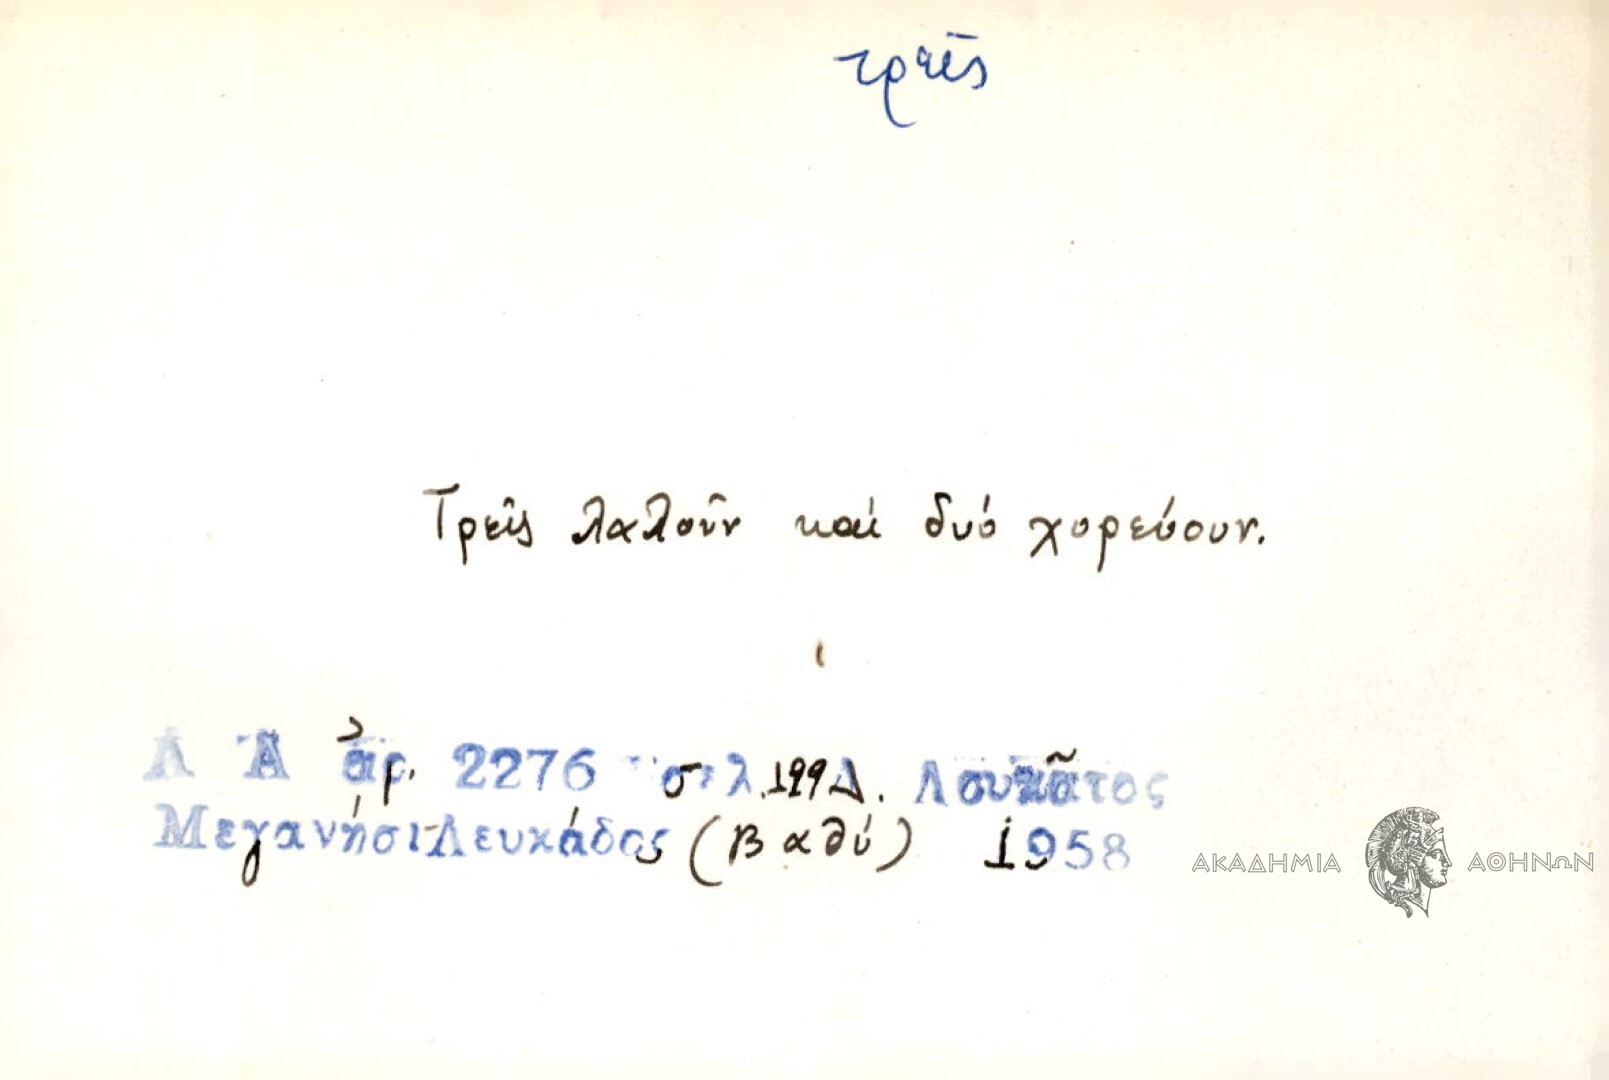 τρεῖς
Τρεῖς λαλοῦν καί δυό χορεύουν.
Λ Α ἀρ. 2276 σελ. 199 Δ. Λουκᾶτος
Μεγανήσι-Λευκάδος (Βαθύ) 1958
ΑΚΑΔΗΜΙΑ ΑΘΗΝΩΝ